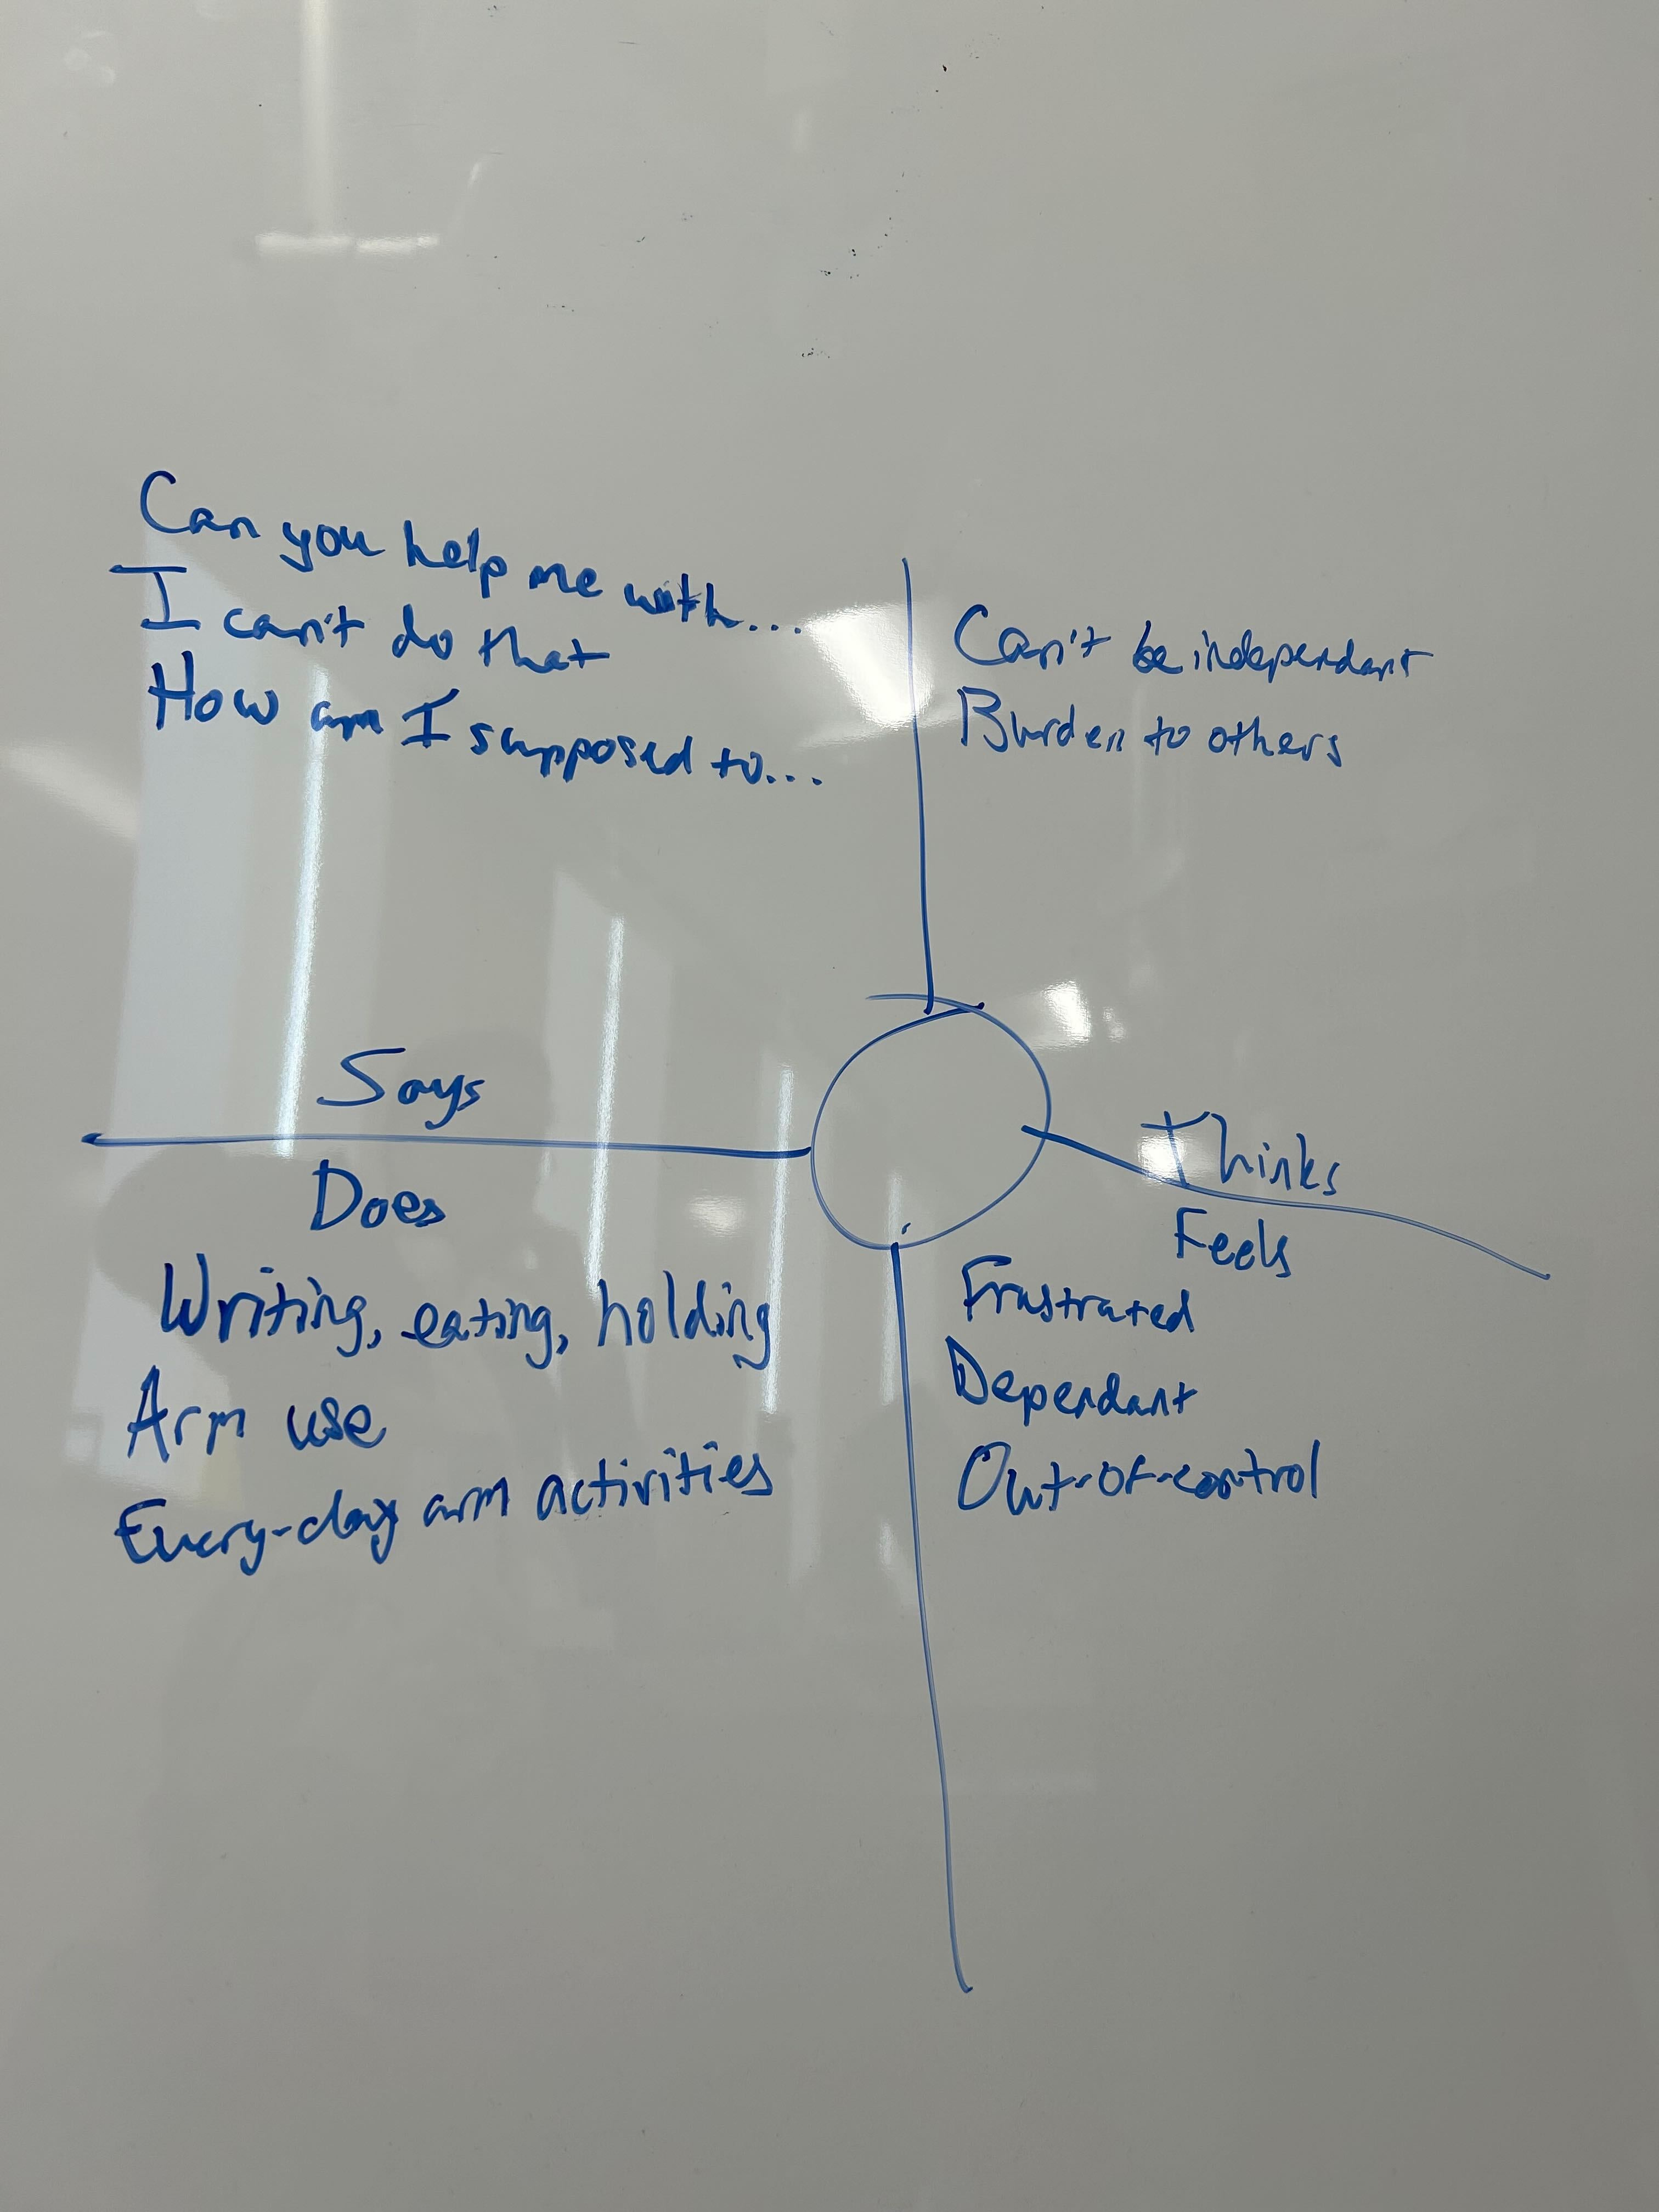 Can you help me with...
I can't do that
How am I supposed to...
Says
Can't be independant
Burden to others
Thinks
Does
Writing, eating, holding
Arm use
Every-day arm activities
Feels
Frustrated
Dependant
Out-of-control